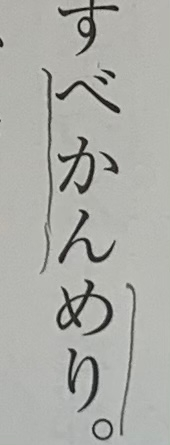 すべかんめり。